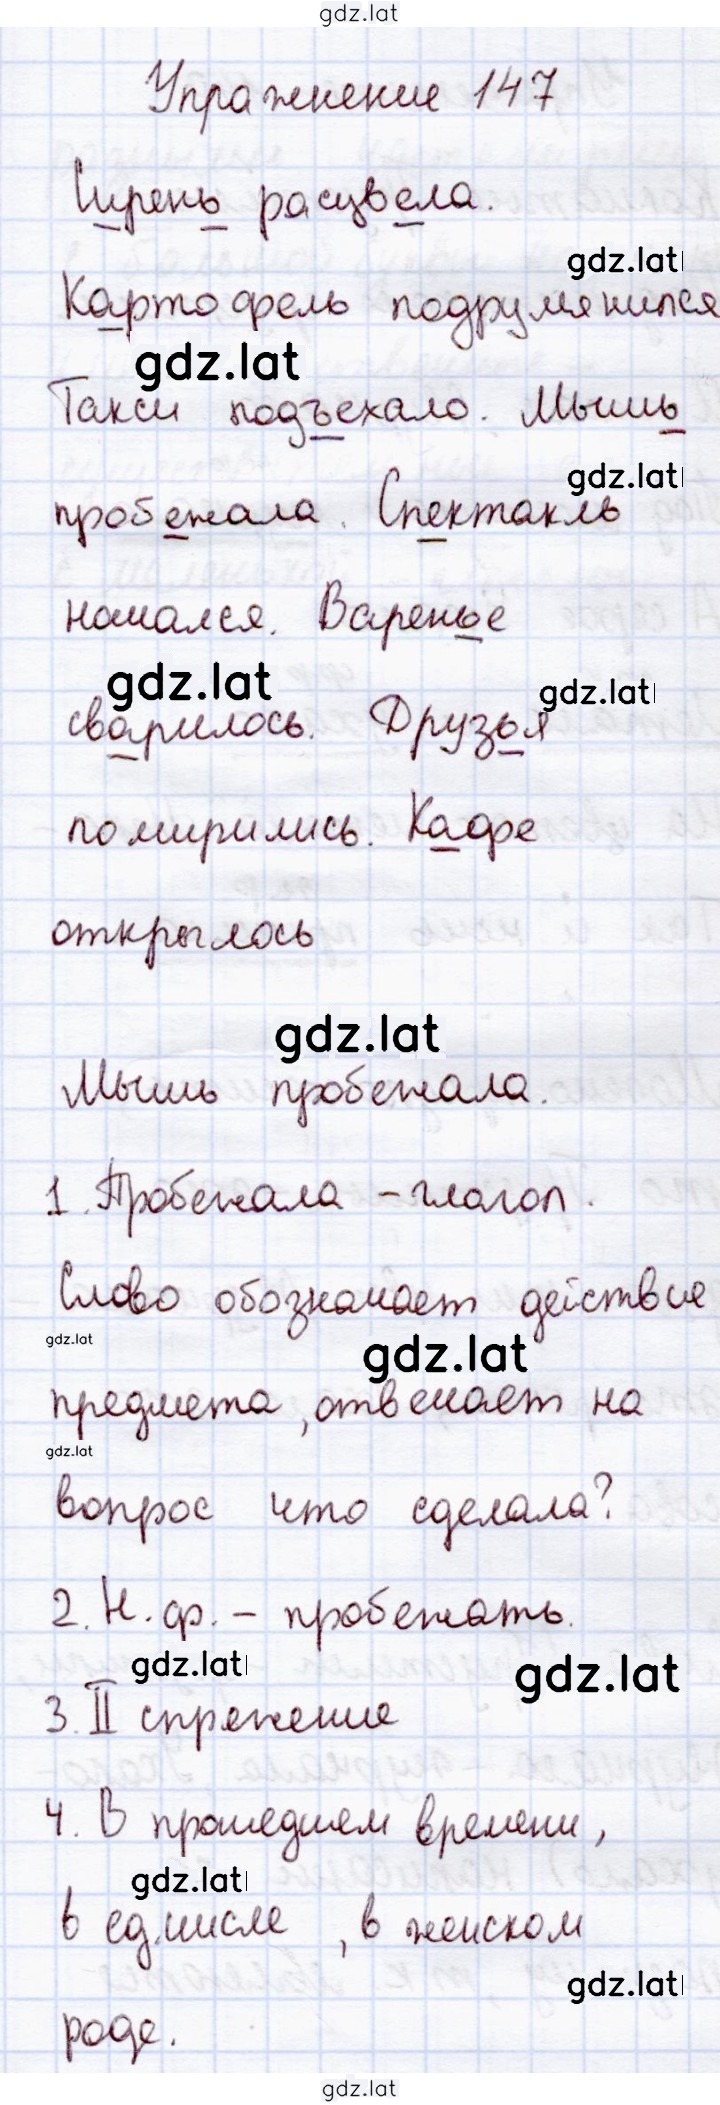 gdz.lat
Упражнение 147
Сирень расцвела.
gdz.lat
Картофель подрумянился
gdz.lat
Такси подъехало. Мышь
gdz.lat
пробежала. Спектакль
начался. Варенье
gdz.lat
gdz.lat
сварилось. Друзья
помирились. Кафе
открылось
gdz.lat
Мышь пробежала.
1. Пробежала – глагол.
Слово обозначает действие
gdz.lat
gdz.lat
предмета, отвечает на
gdz.lat
вопрос что сделала?
2. Н.ф. – пробежать.
gdz.lat
gdz.lat
3. II спряжение
4. В прошедшем времени,
gdz.lat
в ед.числе, в женском
gdz.lat
роде.
gdz.lat